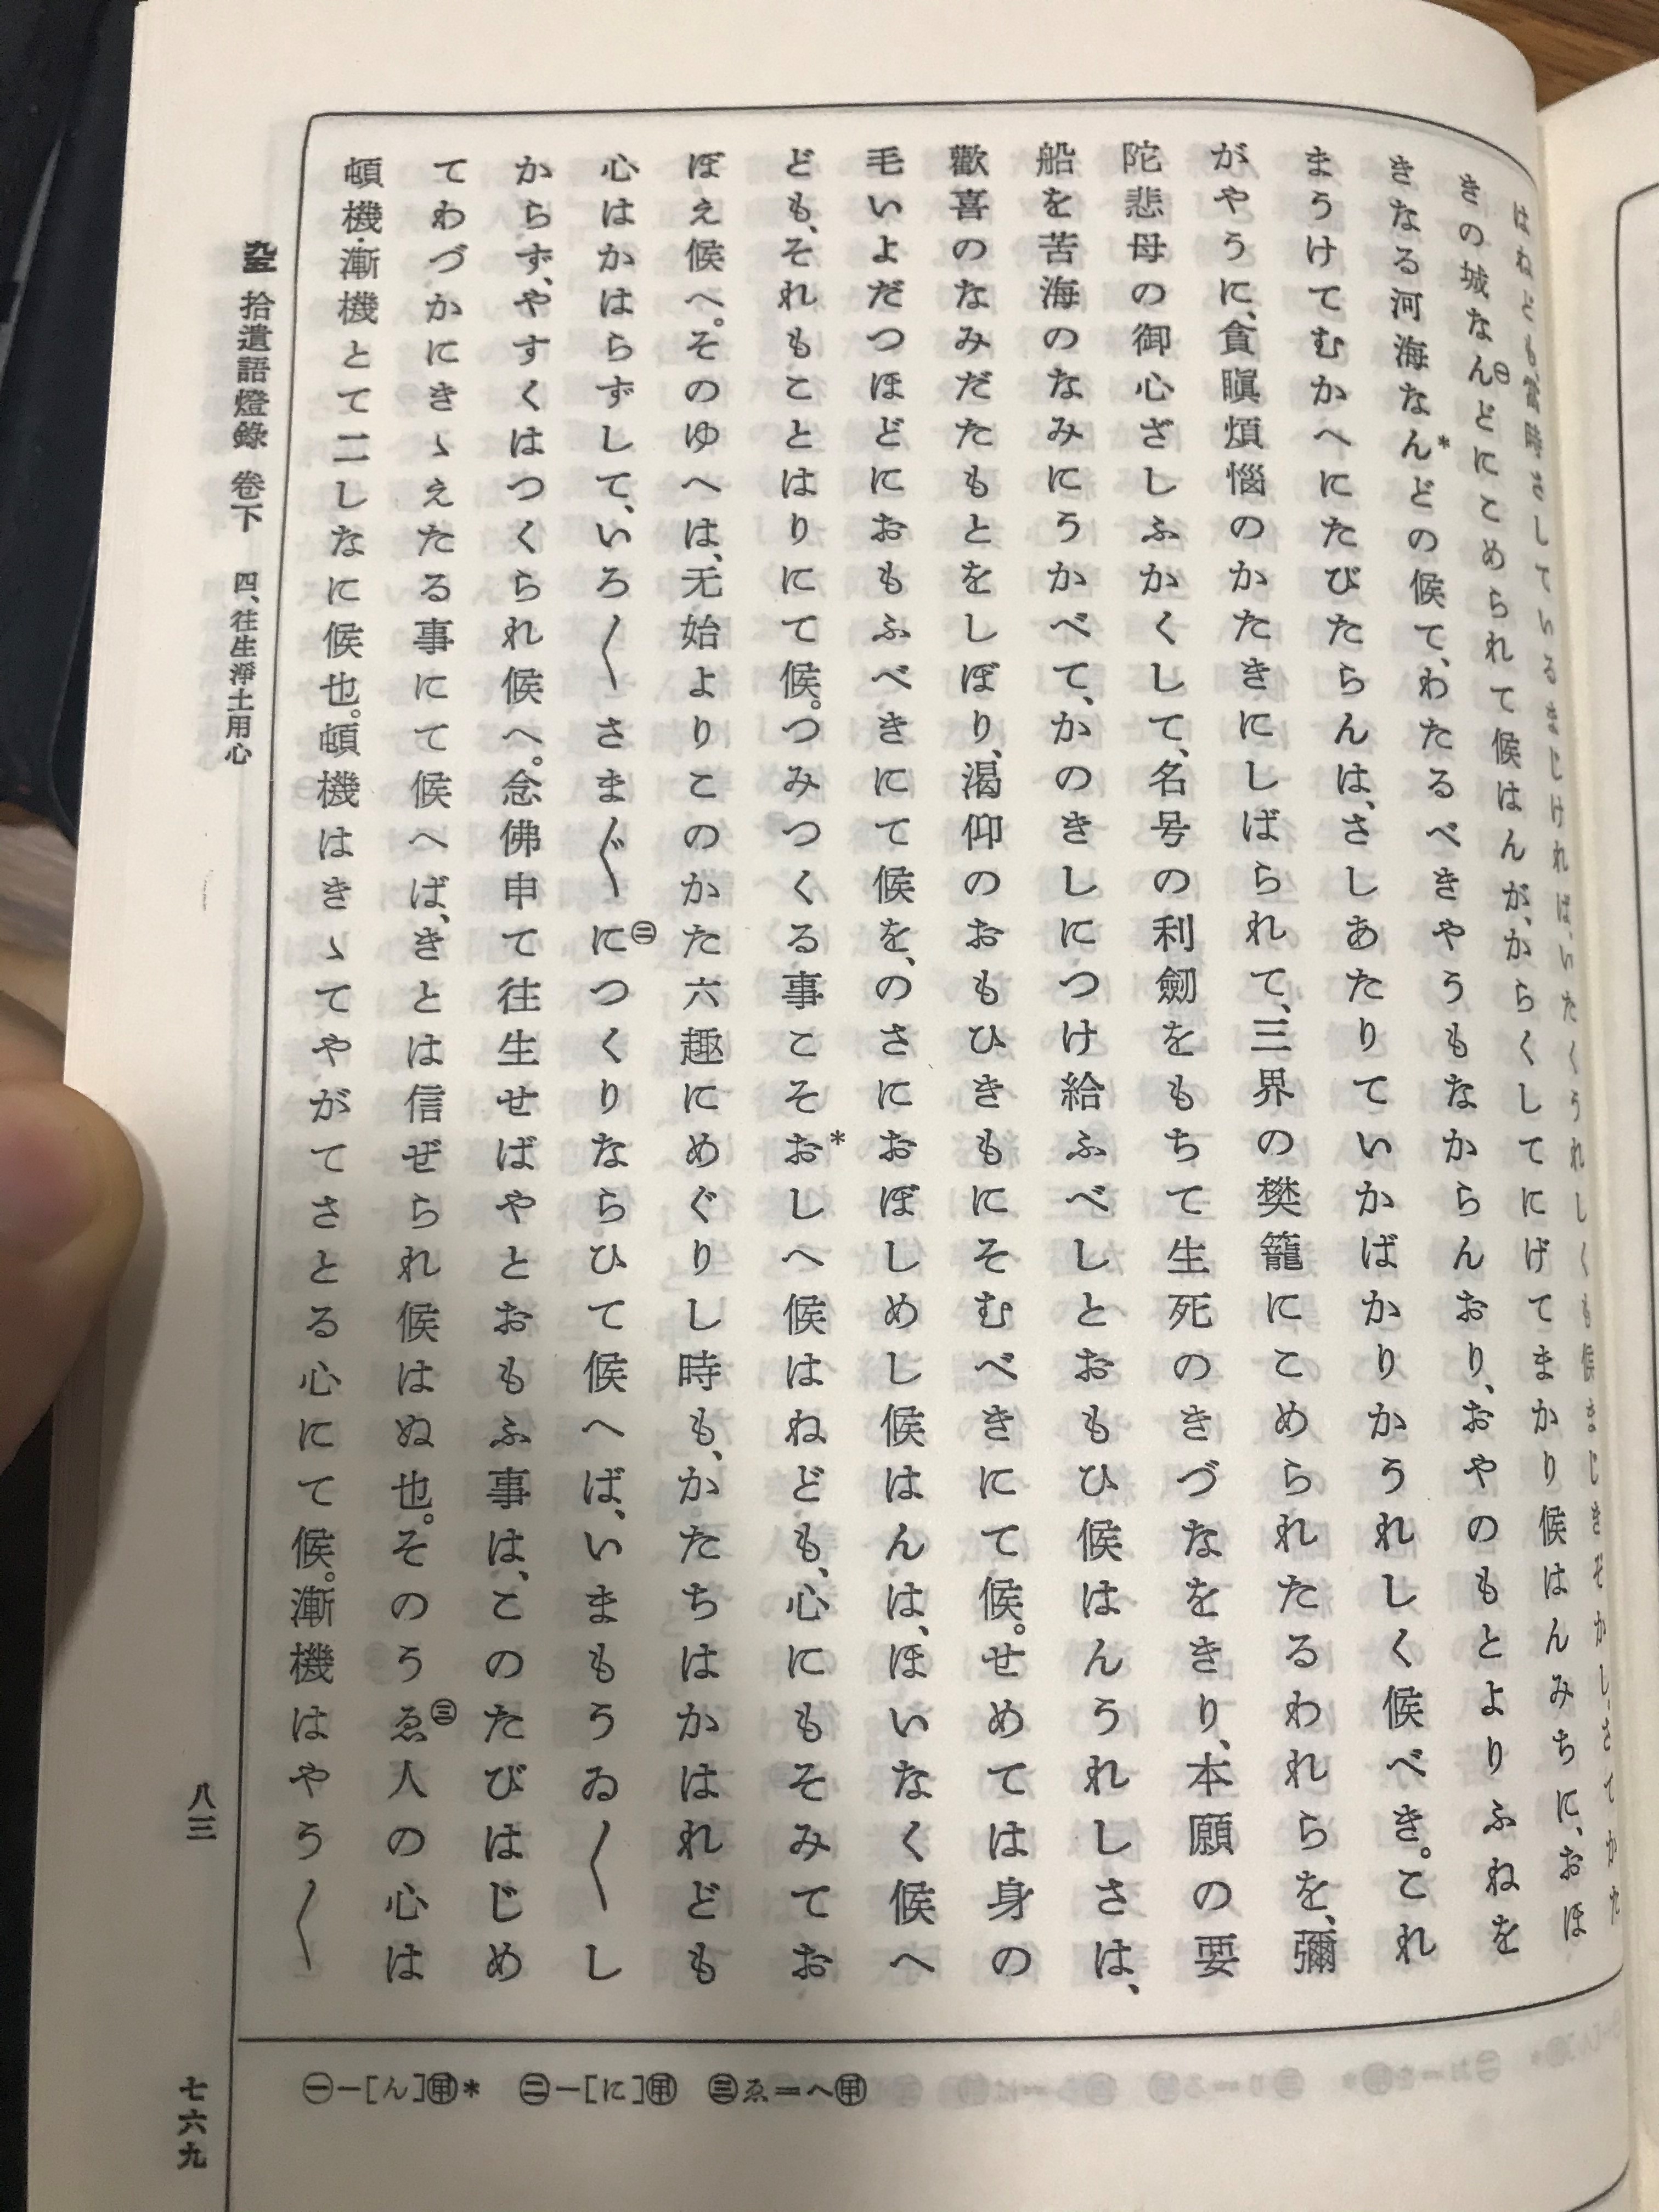 はねども當時さしているまじければ、いたくうれしくも候まじきぞかし。さてかた
きの城なん㊀どにこめられて候はんが、からくしてにげてまかり候はんみちに、おほ
きなる河海なん*どの候て、わたるべきやうもなからんおり、おやのもとよりふねを
まうけてむかへにたびたらんは、さしあたりていかばかりかうれしく候べき。これ
がやうに、貪瞋煩惱のかたきにしばられて、三界の樊籠にこめられたるわれらを、彌
陀悲母の御心ざしふかくして、名号の利劍をもちて生死のきづなをきり、本願の要
船を苦海のなみにうかべて、かのきしにつけ給ふべしとおもひ候はんうれしさは、
歡喜のなみだたもとをしぼり、渴仰のおもひきもにそむべきにて候。せめては身の
毛いよだつほどにおもふべきにて候を、のさにおぼしめし候はんは、ほいなく候へ
ども、それもことはりにて候。つみつくる事こそお*しへ候はねども、心にもそみてお
ぼえ候へ。そのゆへは、无始よりこのかた六趣にめぐりし時も、かたちはかはれども
心はかはらずして、いろ〱さま〲に㊁つくりならひて候へば、いまもうゐ〱し
からず、やすくはつくられ候へ。念佛申て往生せばやとおもふ事は、このたびはじめ
てわづかにきゝえたる事にて候へば、きとは信ぜられ候はぬ也。そのうゑ㊂人の心は
頓機・漸機とて二しなに候也。頓機はきゝてやがてさとる心にて候。漸機はやう〱
拾遺語燈錄 卷下 四、往生淨土用心
八三
七六九
㊀―[ん]㊙甲* ㊁―[に]甲 ㊂ゑ＝へ甲